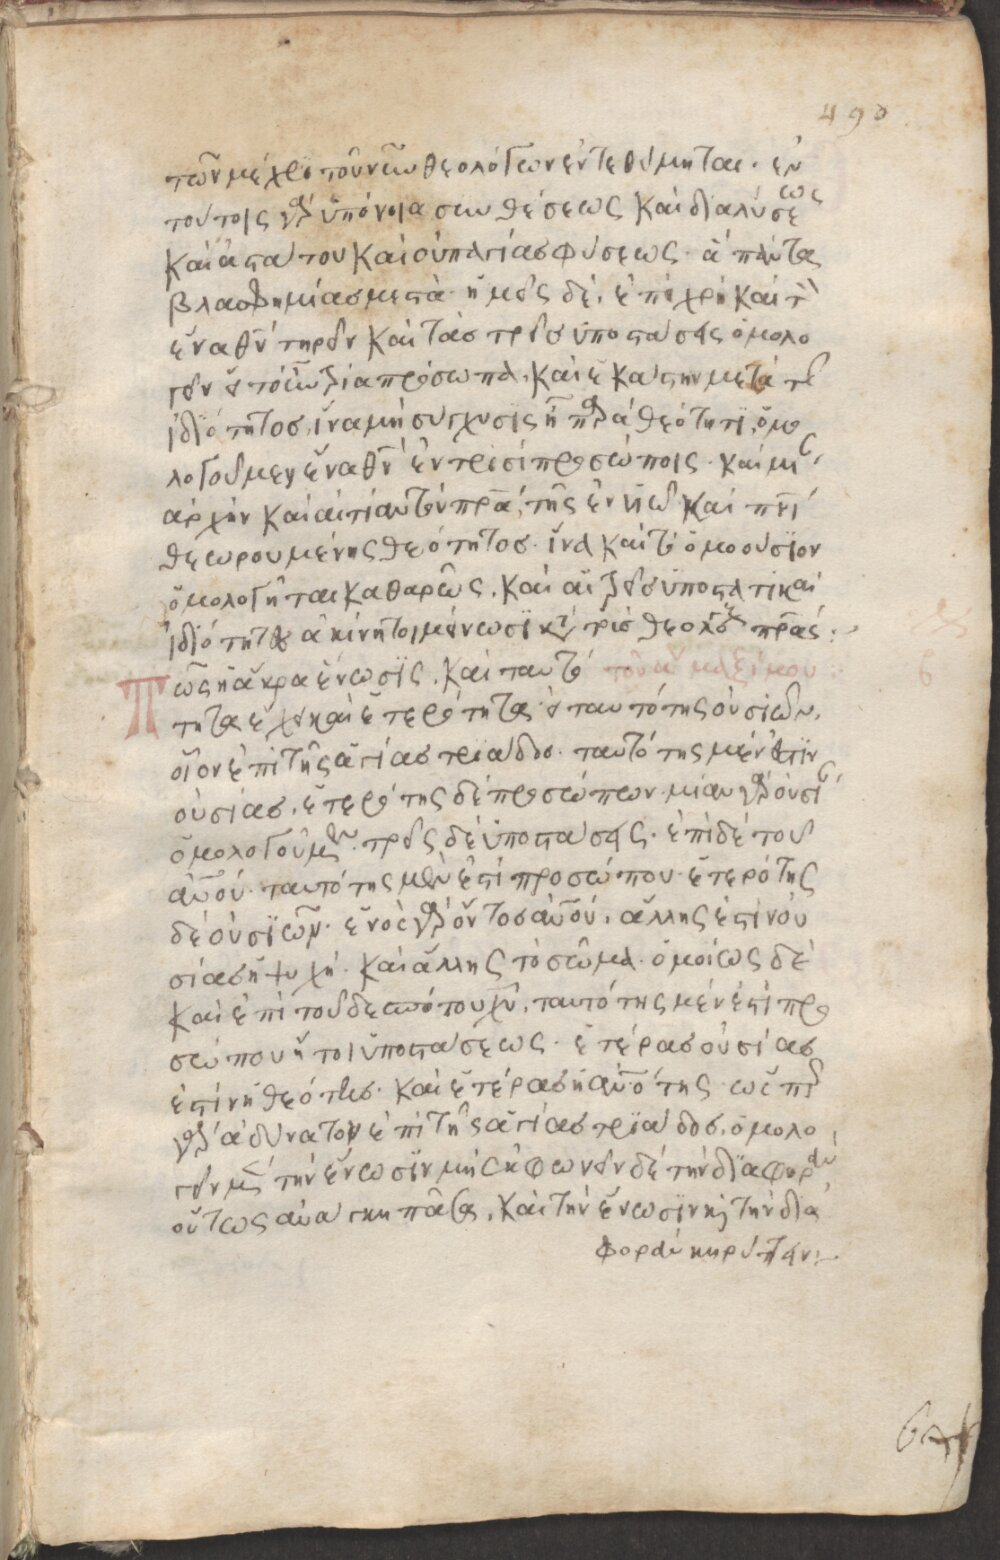 490
τῶν μέχρι τοῦ νῦν θεολόγων ἐντεθύμηται· ἐν
τούτοις γὰρ ὑπόνοια συνθέσεως καὶ διαλύσεως
καὶ ἀπάτου καὶ οὐ πλγίας φύσεως· ἅπαντα
βλασφημίας μεστὰ· ἡμᾶς δὲ, ἐπεὶ χρὴ καὶ τὸν
ἕνα θν τηρεῖν καὶ τὰς τρεῖς ὑποστάσεις ὁμολο
γεῖν εἴτουν τρία πρόσωπα, καὶ ἑκάστην μετὰ τῆς
ἰδιότητος, ἵνα μὴ σύγχυσις ᾖ παρὰ θεότητι, ὁμο
λογοῦμεν ἕνα θν ἐν τρισὶ προσώποις· καὶ μίαν
ἀρχὴν καὶ αἰτίαν τὸν πρα, τῆς ἐν υἱῷ καὶ πνι
θεωρουμένης θεότητος· ἵνα καὶ τὸ ὁμοούσιον
ὁμολογῆται καθαρῶς, καὶ αἱ τρεῖς ὑποστατικαὶ
ἰδιότητες ἀκίνητοι μένωσι κατὰ τοὺς θεολόγους πρας:
Πῶς ἡ ἄκρα ἕνωσις, καὶ ταυτό τοῦ ἁγ μαξίμου
τητα ἔχει καὶ ἑτερότητα· ἢ ταυτότης οὐσιῶν,
οἷον ἐπὶ τῆς ἁγίας τριάδος· ταυτότης μέν ἐστιν
οὐσίας, ἑτερότης δὲ προσώπων· μίαν γὰρ οὐσίαν
ὁμολογοῦμεν· τρεῖς δὲ ὑποστάσεις· ἐπὶ δὲ τοῦ
ανου· ταυτότης μέν ἐστι προσώπου· ἑτερότης
δὲ οὐσιῶν· ἑνὸς γὰρ ὄντος ανου, ἄλλης ἐστὶν οὐ
σίας ἡ ψυχή· καὶ ἄλλης τὸ σῶμα· ὁμοίως δὲ
καὶ ἐπὶ τοῦ δεσπότου χυ, ταυτότης μέν ἐστι προ
σώπου ἤτοι ὑποστάσεως· ἑτέρας οὐσίας
ἐστὶν ἡ θεότης· καὶ ἑτέρας ἡ ανότης· ὥσπερ
γὰρ ἀδύνατον ἐπὶ τῆς ἁγίας τριάδος, ὁμολο
γεῖν μὲν τὴν ἕνωσιν μὴ ἐκφωνεῖν δὲ τὴν διαφοράν,
οὕτως ἀνάγκη πᾶσα, καὶ τὴν ἕνωσιν καὶ τὴν δια
φορὰν κηρύττειν: